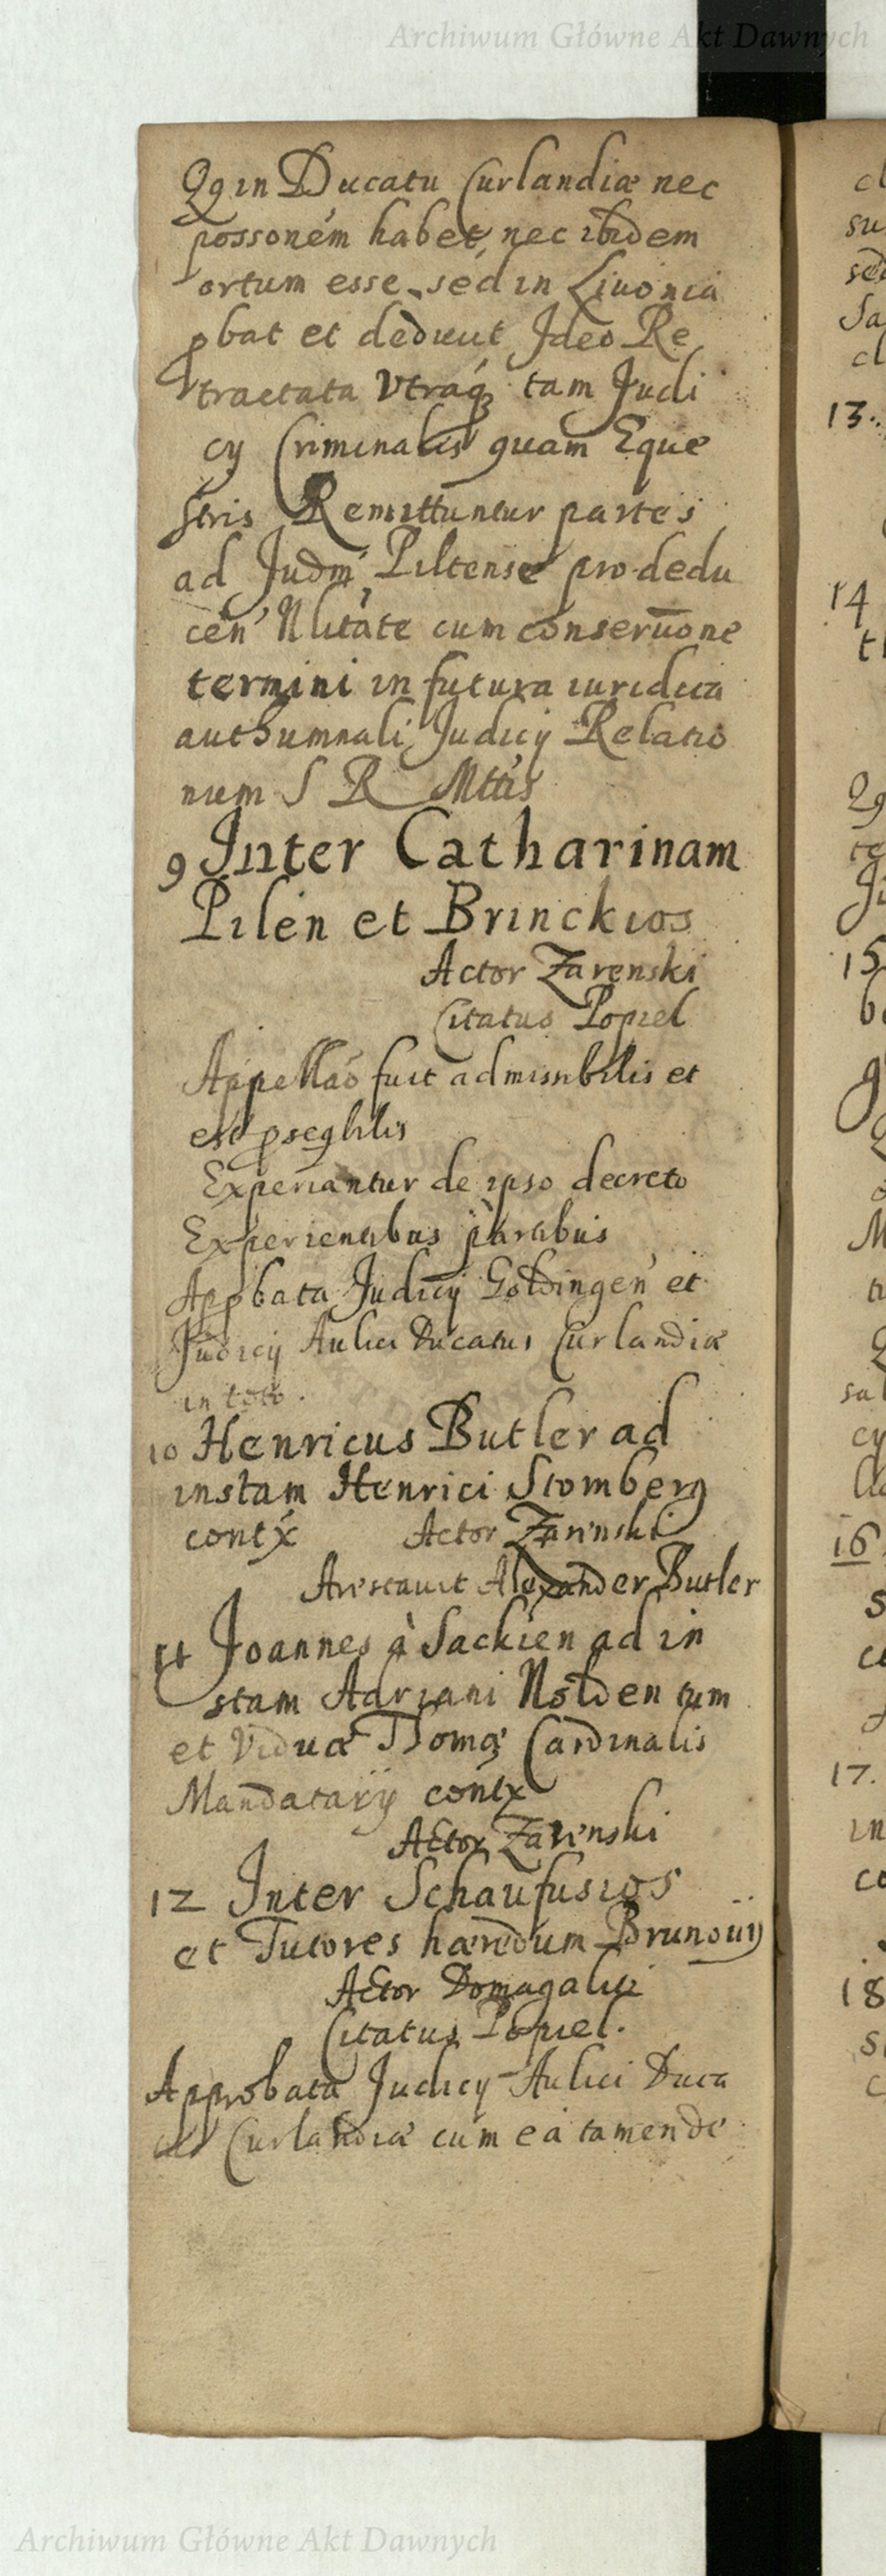 Archiwum Główne Akt Dawnych
Qq in Ducatu Curlandiæ nec
possoném habet, nec ibidem
ortum esse, sed in Liuonia
pbat et deduxit Ideo Re
tractata Vtraq; tam Judi
cÿ Criminalis quam Eque
stris Remittuntur partes
ad Judm Piltense pro dedu
cen Nlitate cum conseruone
termini in futura iuridica
authumnali Judicÿ Relatio
num S R Mttis
9 Inter Catharinam
Pilen et Brinckios
Actor Zarenski
Citatus Popiel
Appellao fuit admissibilis et
est pseqbilis
Experiantur de ipso decreto
Experientibus partibus
Appbata Judicÿ Goldingen et
Judicÿ Aulici Ducatus Curlandiæ
in toto.
10 Henricus Butler ad
instam Henrici Stomberg
contx Actor Zarenski
Arestauit Alexander Butler
11 Joannes à Sackien ad in
stam Adriani Nolden tum
et Viduæ Thomæ Cardinalis
Mandatarÿ contx
Actor Zarenski
12 Inter Schaufusios
et Tutores hæredum Brunouÿ
Actor Domagalicz
Citatus Popiel.
Approbata Judicÿ Aulici Duca
Curlandiæ cum ea tamen de
13.
14
15
16
17.
18
Archiwum Główne Akt Dawnych